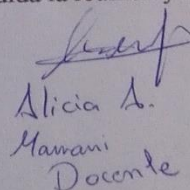 Alicia A.
Mamani
Docente